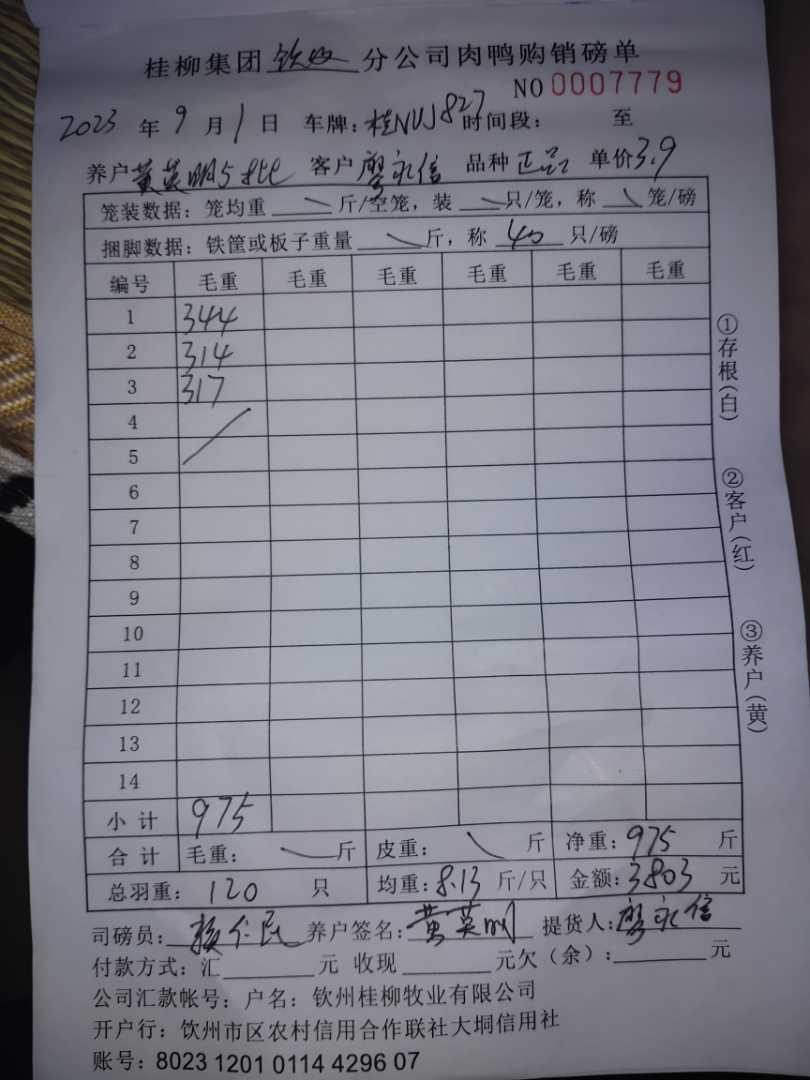 桂柳集团 钦州 分公司肉鸭购销磅单
NO 0007779
2023 年 9 月 1 日 车牌:桂NUJ827 时间段: 至
养户 黄英明5批 客户 廖永信 品种 正品 单价 3.9
笼装数据:笼均重 斤/空笼,装 只/笼,称 笼/磅
捆脚数据:铁筐或板子重量 斤,称 40 只/磅
编号 毛重 毛重 毛重 毛重 毛重 毛重
1 344
2 314
3 317
4
5
6
7
8
9
10
11
12
13
14
小计 975
合计 毛重: 斤 皮重: 斤 净重:975 斤
总羽重: 120 只 均重:8.13 斤/只 金额:3803 元
司磅员: 仁民 养户签名:黄英明 提货人:廖永信
付款方式:汇 元 收现 元欠(余): 元
公司汇款帐号:户名:钦州桂柳牧业有限公司
开户行:钦州市区农村信用合作联社大垌信用社
账号:8023 1201 0114 4296 07
①存根(白)
②客户(红)
③养户(黄)